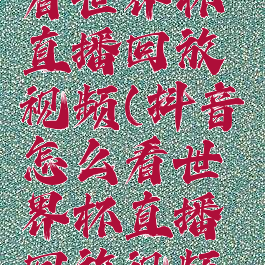 看世界杯
直播回放
视频(抖音
怎么看世
界杯直播
回放视频